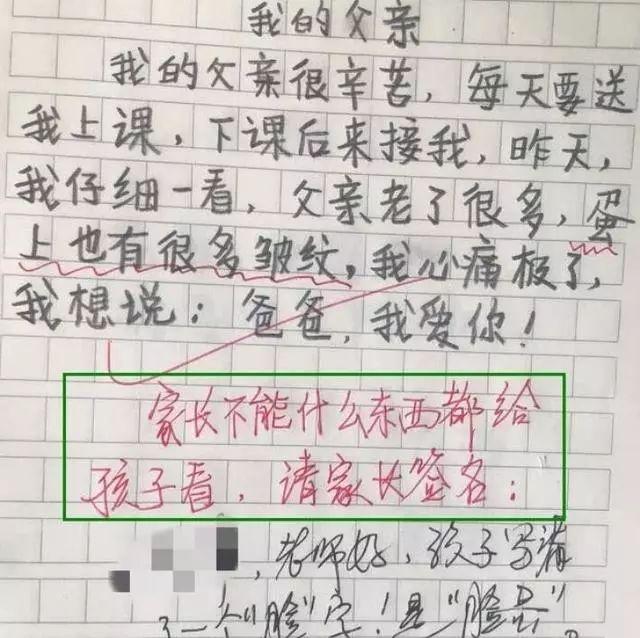 我的父亲
我的父亲很辛苦，每天要送
我上课，下课后来接我，昨天，
我仔细一看，父亲老了很多，蛋
上也有很多皱纹，我心痛极了，
我想说：爸爸，我爱你！
家长不能什么东西都给
孩子看，请家长签名：
，老师好，孩子写漏
了一个"脸"字！是"脸蛋"